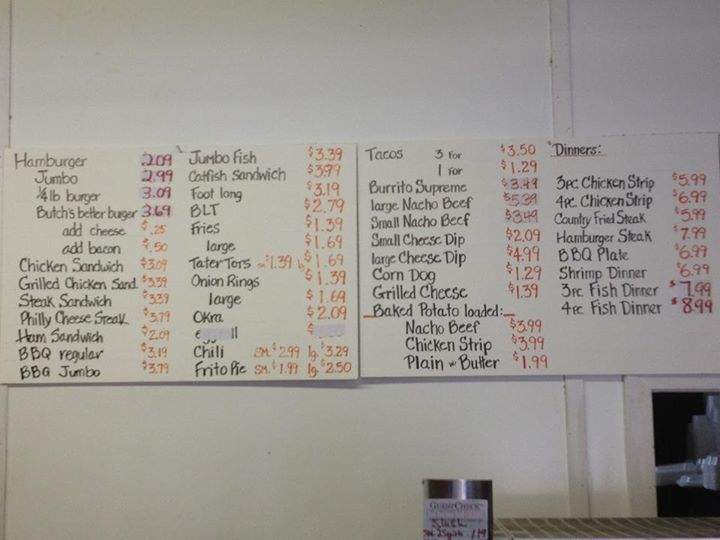 Hamburger 2.09
Jumbo 2.99
1/4 lb burger 3.09
Butch's better burger 3.69
add cheese $.25
add bacon $.50
Chicken Sandwich $3.09
Grilled Chicken Sand. $3.39
Steak Sandwich $3.39
Philly Cheese Steak $3.79
Ham Sandwich $2.09
BBQ regular $3.19
BBQ Jumbo $3.79
Jumbo Fish $3.39
Catfish Sandwich $3.99
Foot long $3.19
BLT $2.79
Fries $1.39
large $1.69
Tater Tors $1.39 lg $1.69
Onion Rings $1.39
large $1.69
Okra $2.09
Chili sm. $2.99 lg. $3.29
Frito Pie sm. $1.99 lg. $2.50
Tacos 3 for $3.50
1 for $1.29
Burrito Supreme $3.49
large Nacho Beef $5.39
Small Nacho Beef $3.49
Small Cheese Dip $2.09
large Cheese Dip $4.99
Corn Dog $1.29
Grilled Cheese $1.39
Baked Potato loaded:
Nacho Beef $3.99
Chicken Strip $3.99
Plain w Butter $1.99
Dinners:
3pc Chicken Strip $5.99
4pc Chicken Strip $6.99
Country Fried Steak $5.99
Hamburger Steak $7.99
BBQ Plate $6.99
Shrimp Dinner $6.99
3pc Fish Dinner $7.99
4pc Fish Dinner $8.99
Guest Check